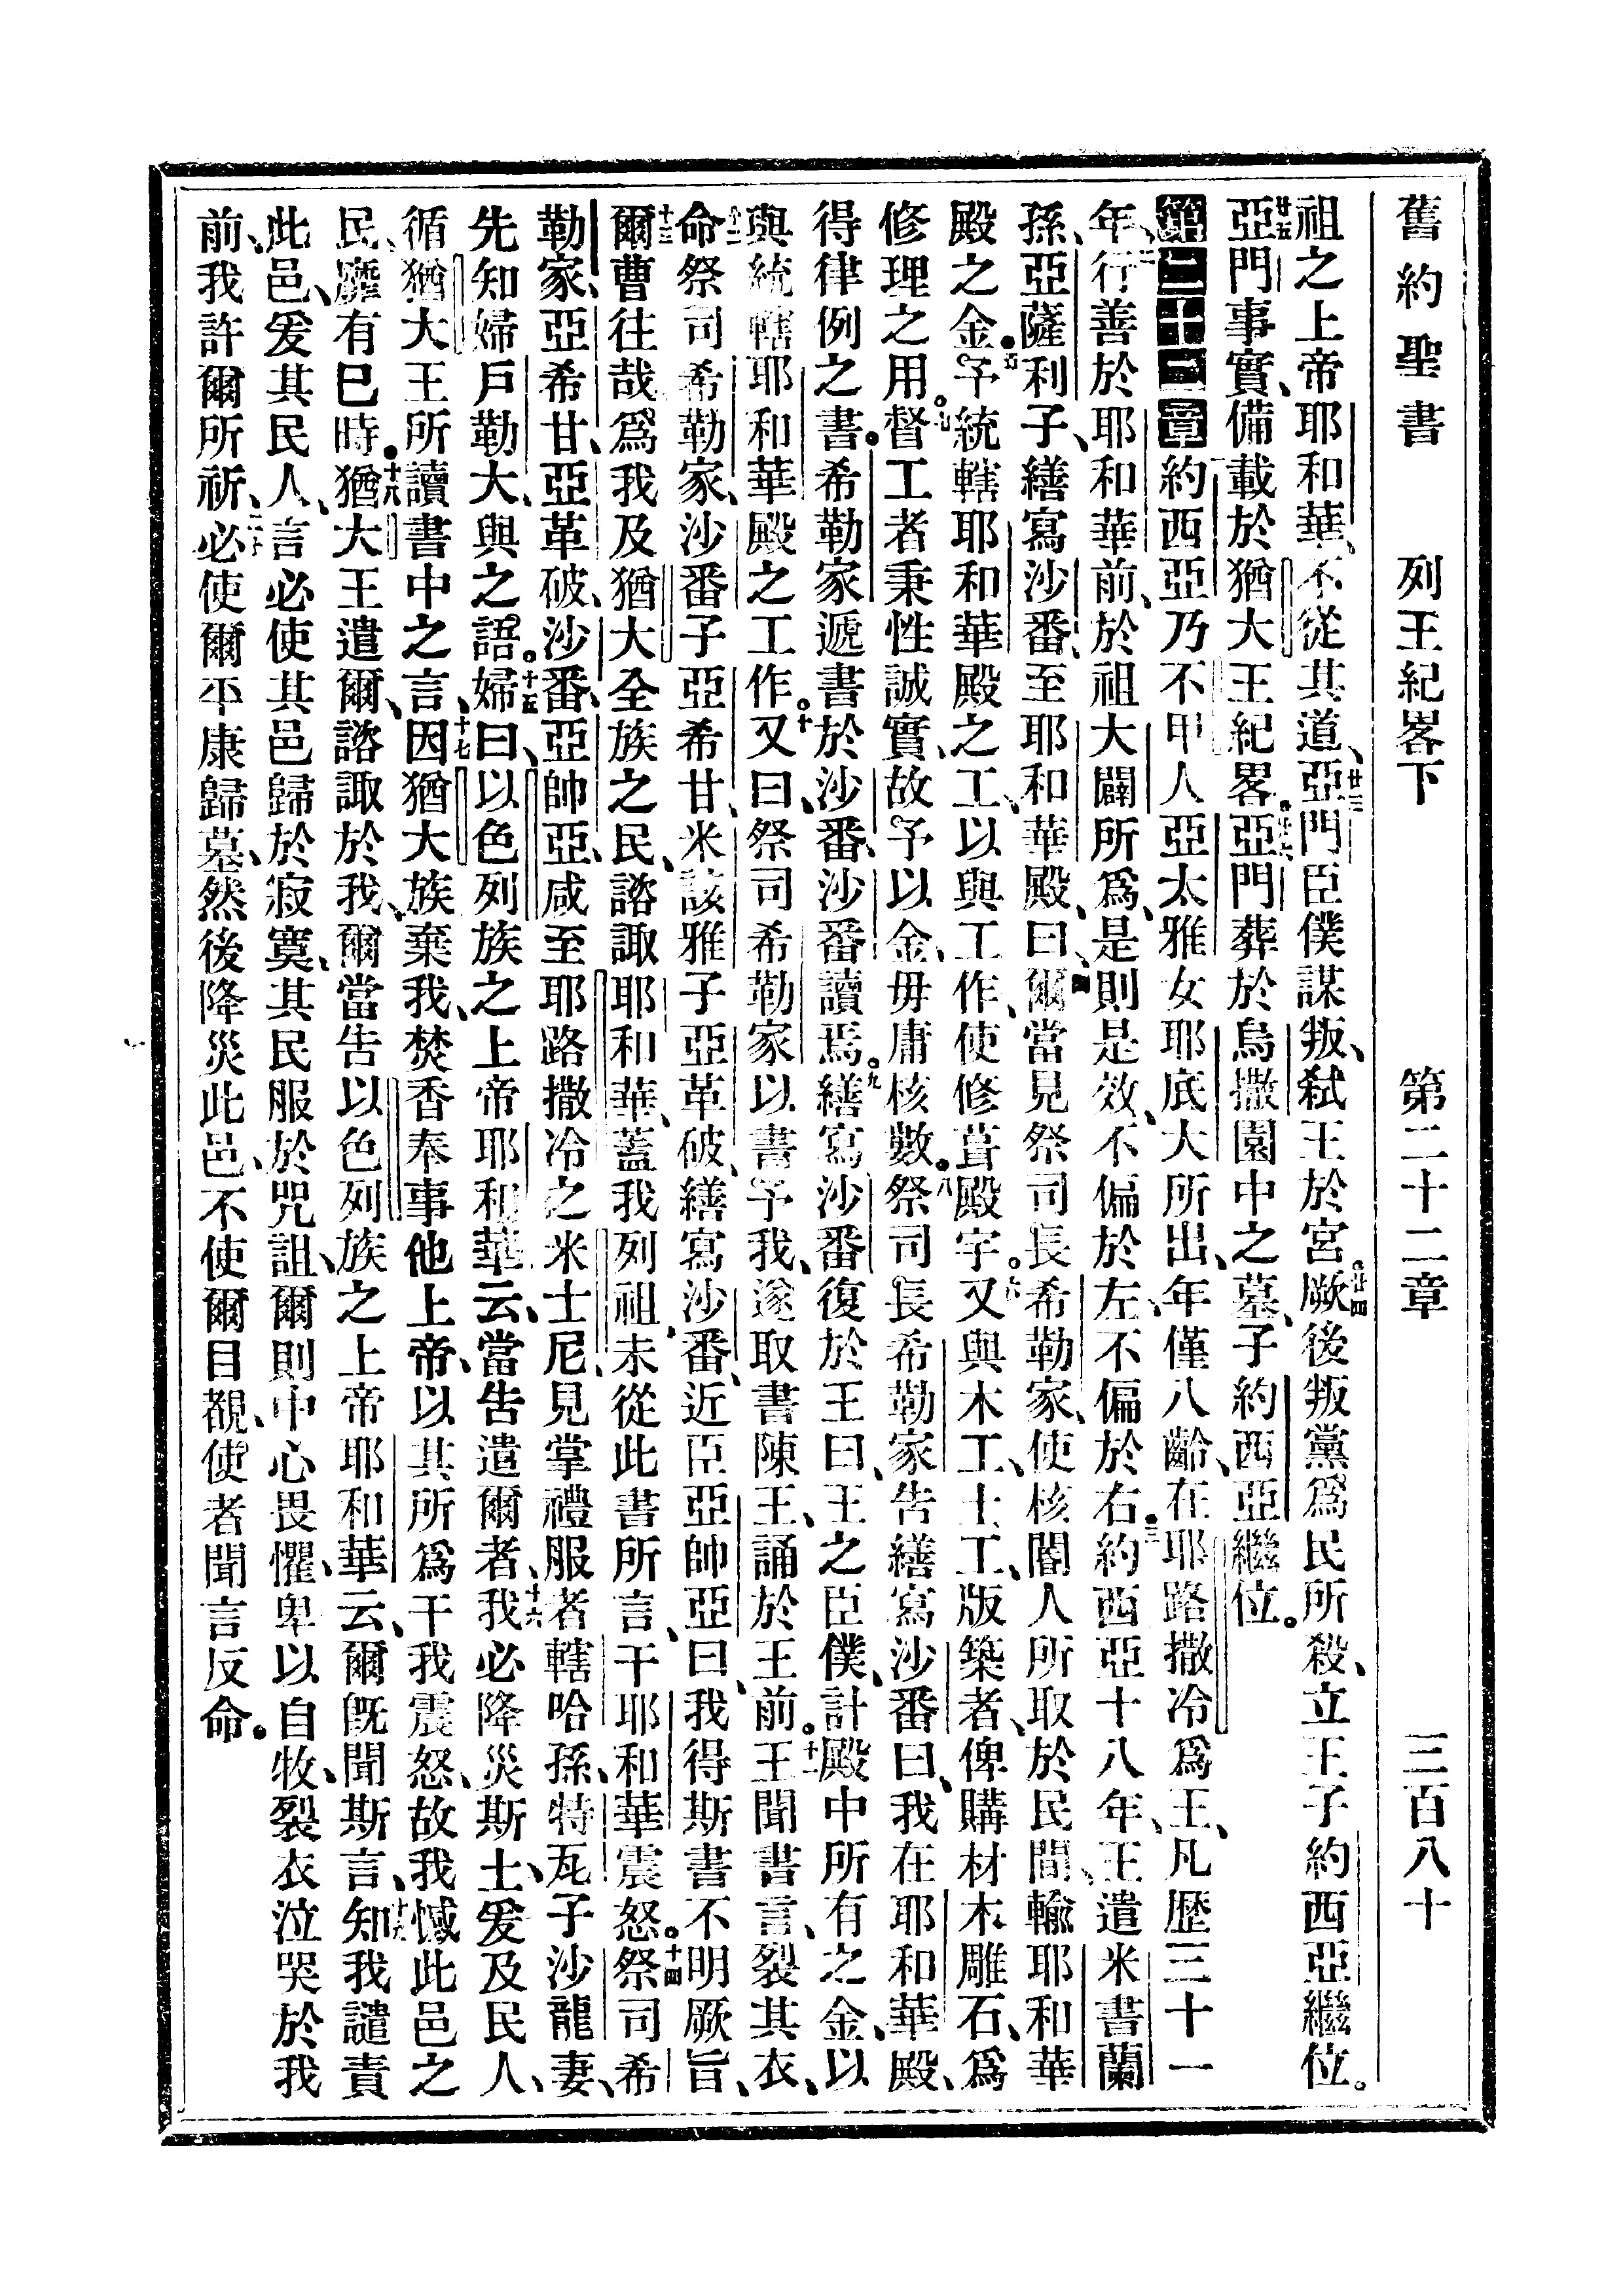 舊約聖書 列王紀畧下 第二十二章 三百八十
祖之上帝耶和華、不從其道、廿三亞門臣僕謀叛、弒王於宮。廿四厥後叛黨爲民所殺、立王子約西亞繼位。
廿五亞門事實、備載於猶大王紀畧。廿六亞門葬於烏撒園中之墓、子約西亞繼位。
第二十二章 約西亞乃不甲人亞太雅女耶底大所出、年僅八齡、在耶路撒冷爲王、凡歷三十一
年、二行善於耶和華前、於祖大闢所爲、是則是效、不偏於左、不偏於右。三約西亞十八年、王遣米書蘭
孫、亞薩利子、繕寫沙番、至耶和華殿、曰、四爾當見祭司長希勒家、使核閽人所取於民間、輸耶和華
殿之金。五予統轄耶和華殿之工、以與工作、使修葺殿宇。六又與木工、土工、版築者、俾購材木雕石、爲
修理之用。七督工者秉性誠實、故予以金、毋庸核數。八祭司長希勒家告繕寫沙番曰、我在耶和華殿、
得律例之書。希勒家遞書於沙番、沙番讀焉。九繕寫沙番復於王曰、王之臣僕、計殿中所有之金、以
與統轄耶和華殿之工作。十又曰、祭司希勒家以書予我、遂取書陳王、誦於王前。十一王聞書言、裂其衣、
十二命祭司希勒家、沙番子亞希甘、米該雅子亞革破、繕寫沙番、近臣亞帥亞曰、我得斯書不明厥旨、
十三爾曹往哉、爲我及猶大全族之民、諮諏耶和華、蓋我列祖、未從此書所言、干耶和華震怒。十四祭司希
勒家、亞希甘、亞革破、沙番、亞帥亞、咸至耶路撒冷之米士尼、見掌禮服者、轄哈孫、特瓦子沙龍妻、
先知婦戶勒大、與之語。十五婦曰、以色列族之上帝耶和華云、當告遣爾者、十六我必降災斯土、爰及民人、
循猶大王所讀書中之言、十七因猶大族棄我、焚香奉事他上帝、以其所爲干我震怒、故我憾此邑之
民、靡有已時。十八猶大王遣爾、諮諏於我、爾當告以色列族之上帝耶和華云、爾既聞斯言、十九知我譴責
此邑、爰其民人、言必使其邑歸於寂寞、其民服於咒詛、爾則中心畏懼、卑以自牧、裂衣泣哭於我
前、我許爾所祈、二十必使爾平康歸墓、然後降災此邑、不使爾目覩、使者聞言反命。